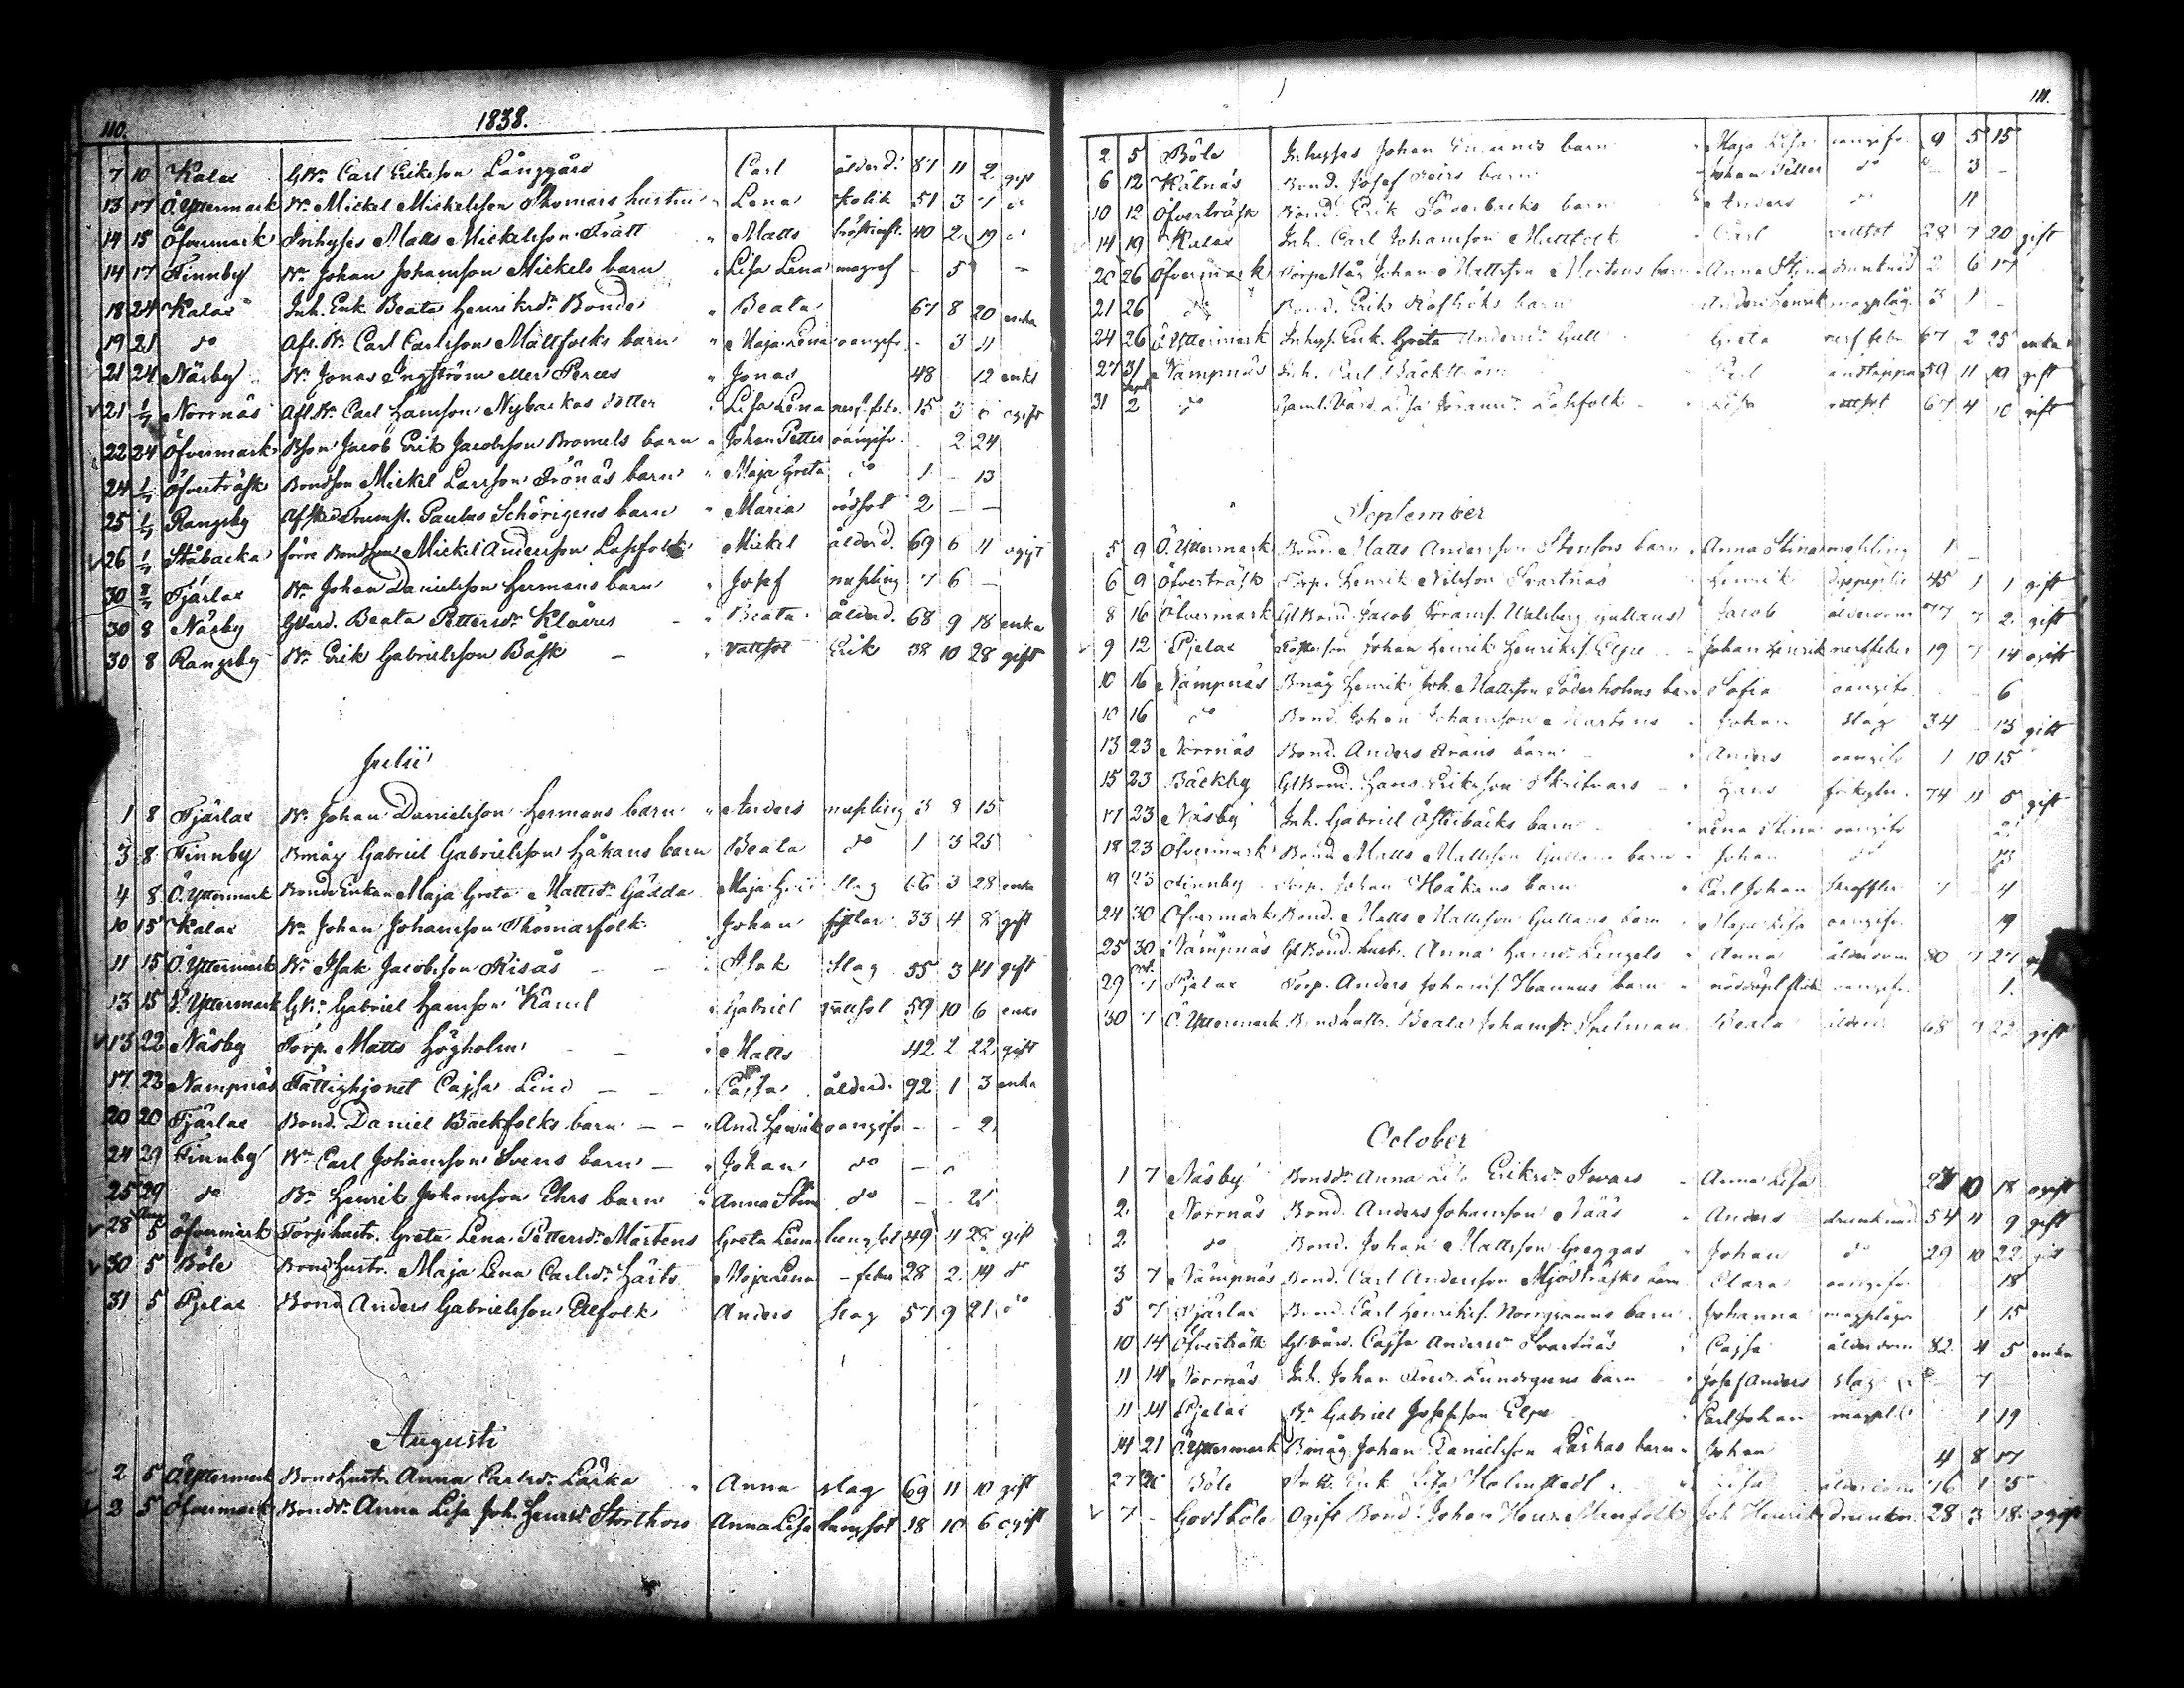 110.
1838.
7 10 Kalax GBn. Carl Erikson Långgårs Carl ålderd. 87 11 2 gift
13 17 Ö.Yttermark Bn. Mickel Mickelsson Thomars hustru Lena kolik 51 3 7 do
14 15 Öfvermark Inhyses Matts Mickelsson Trått " Matts bröstinfl. 40 2 19 do
14 17 Finnby Bn. Johan Johansson Mickels barn " Lisa Lena magref - 5 -
18 24 Kalax Inh. Enk. Beata Henriksdr. Bonde " Beata 67 8 20 enka
19 21 do Afl. Bn. Carl Carlsson Mattfolks barn " Maja Lena oangifv. - 3 11
21 24 Näsby Bn. Jonas Ingström eller Perus " Jonas 48 12 enkl
v 21 1/7 Norrnäs Afl. Bn. Carl Hansson Nybackas dotter " Lisa Lena nerf.feb. 15 3 ogift
22 24 Öfvermark Bson Jacob Erik Jacobsson Bromels barn " Johan Petter oangifv. - 2 24
24 1/7 Öfverträsk Bondson Mickel Larsson Trönäs barn " Maja Greta do 1 - 13
25 1/7 Rangsby Afsked. Trumsl. Paulus Schörigens barn " Maria rödsot 2 - -
v 26 1/7 Ståbacka förre Bondson Mickel Andersson Lassfolk Mickel ålderd. 69 6 11 ogift
30 Tjärlax Bn. Johan Danielsson Hermans barn " Josef messling 7 6 -
30 8 Näsby GVärd. Beata Pettersdr. Klåvus - " Beata ålderd. 68 9 18 enka
30 8 Rangsby Bn. Erik Gabrielsson Båsk - " vattsot Erik 38 10 28 gift
Julii
1 8 Tjärlax Bn. Johan Danielsson Hermans barn " Anders messling 3 8 15
3 8 Finnby Bmåg Gabriel Gabrielsson Håkans barn Beata do 1 3 25
4 8 Ö.Yttermark Bonde Enkan Maja Greta Mattsdr. Gädda Maja Gre slag 66 3 28 enka
10 15 Kalax Bn. Johan Johansson Thomasfolk Johan 33 4 8 gift
11 15 Ö.Yttermark Bn. Isak Jacobsson Risås - - " Isak slag 55 3 14 gift
13 15 Ö.Yttermark GBn. Gabriel Hansson Kamb " Gabriel vattsot 59 10 6 enkl
v 13 22 Näsby Torp. Matts Högholm - - " Matts 42 2 22 gift
17 23 Nämpnäs Fattighjonet Cajsa Lind - - " Cajsa ålderd. 92 1 3 enka
20 20 Tjärlax Bond. Daniel Backfolks barn - - " And. Henrik oangifv. - - 2
24 29 Finnby Bn. Carl Johansson Svens barn - " Johan do - -
25 29 do Bn. Henrik Johansson Ehrs barn " Anna Stina do - - 21
v 28 Aug. 5 Öfvermark Torphustr. Greta Lena Pettersdr. Mårtens Greta Lena 49 11 gift
v 30 5 Böle Bondhustr. Maja Lena Carlsdr. Härts Maja Lena - feber 28 2 14 do
31 5 Pjelax Bond Anders Gabrielsson Elfolk Anders slag 57 9 21 do
Augusti
2 5 Ö.Yttermark Bondhustr. Anna Carlsdr. Lärka " Anna slag 69 11 10 gift
v 3 5 Öfvermark Bonddr. Anna Lisa Joh. Henrsdr. Storthors Anna Lisa 18 10 6 ogift
111.
2 5 Böle Inhyses Johan barn " Maja Lisa oangifv. 9 5 15
6 12 Kåtnäs Bond. Josef barn Johan Petter do - 3 -
10 12 Öfverträsk Bond. Erik Söderbacks barn " Anders do 11
14 19 Kalax Inh. Carl Johansson Mattfolk " Carl vattsot 28 7 20 gift
20 26 Öfvermark Torpemåg Johan Mattsson Mårtens barn Anna Stina drunknad 2 6 17
21 26 do Bond. Eriks barn Anders Henrik magplåg. 3 1 -
24 26 Ö.Yttermark Inhys. Enk. Greta Andersdr. Gull Greta nerf feber 67 2 25 enka
27 31 Nämpnäs Inh. Carl Bäckström Carl andtäppa 59 11 19 gift
31 Sept. 2 do Gaml. Värd. Lisa Johansdr. Lassfolk Lisa vattsot 67 4 10 gift
September
5 9 Ö.Yttermark Bond. Matts Andersson Storfors barn " Anna Stina messling 1 -
6 9 Öfverträsk Torp. Henrik Nilsson Svartnäs Henrik 45 1 1 gift
8 16 Öfvermark Gl Bond. Jacob Göransf. Gullans Jacob ålderdom 77 7 2 gift
v 9 12 Pjelax Johan Henrik Henriksf. Elge Johan Henrik nerffeber 19 7 14 ogift
10 16 Nämpnäs Bmåg Henrik Joh. Mattsson Söderholms barn Sofia oangifv. 6
10 16 do Bond. Johan Johansson Mårtens " Johan slag 34 - 13 gift
13 23 Norrnäs Bond. Anders barn " Anders oangifv. 1 10 15
15 23 Bäckby Gl Bond. Hans Eriksson Skrifvars - " Hans förkyln. 74 11 5 gift
17 23 Näsby Inh. Gabriel Österbäcks barn Lena Stina oangifv.
18 23 Öfvermark Bond. Matts Mattsson Gullans barn Johan do 13
19 23 Finnby Torp. Johan Håkans barn " Carl Johan skroffler 7 - 4
24 30 Öfvermark Bond. Matts Mattsson Gullans barn " Maja Lisa oangifv. 19
25 30 Nämpnäs Gl Bond. hust. Anna Hansdr. Lengels " Anna ålderdom 80 7 27
29 Oct. 7 Pjelax Torp. Anders Johansf. Hannus barn " oangifv. 1.
30 7 Ö.Yttermark Bondhustr. Beata Johansdr. Spelman Beata ålderd. 68 7 22 gift
October
1 7 Näsby Bonddr. Anna Lisa Eriksdr. Ivars " Anna Lisa 10 18 ogift
2 Norrnäs Bond. Anders Johansson Nääs " Anders drunknad 54 11 9 gift
2 do Bond. Johan Mattsson Greggas " Johan do 29 10 22 gift
3 7 Nämpnäs Bond. Carl Andersson Mjödträsks barn " Clara oangifv. 18
5 7 Tjärlax Bond. Carl Henriksf. Norrgranns barn Johanna magplågor 1 15
10 14 Öfverträsk Gl. Värd. Cajsa Andersdr. Svartnäs " Cajsa ålderdom 82 4 5 enka
11 14 Norrnäs Inh. Johan Fredr. Lundegrens barn " Josef Anders slag - 7
11 14 Pjelax Bn. Gabriel Josefsson Elge Carl Johan magpl. 1 19
14 21 Ö.Yttermark Bmåg Johan Danielsson Lärkas barn " Johan 4 8 17
27 28 Böle Inh. Enk. Lisa Holmstedt " Lisa ålderdom 76 1 5
v 7 - Gottböle Ogift Bond. Johan Henr. Joh Henrik drunkn. 28 3 18 ogift